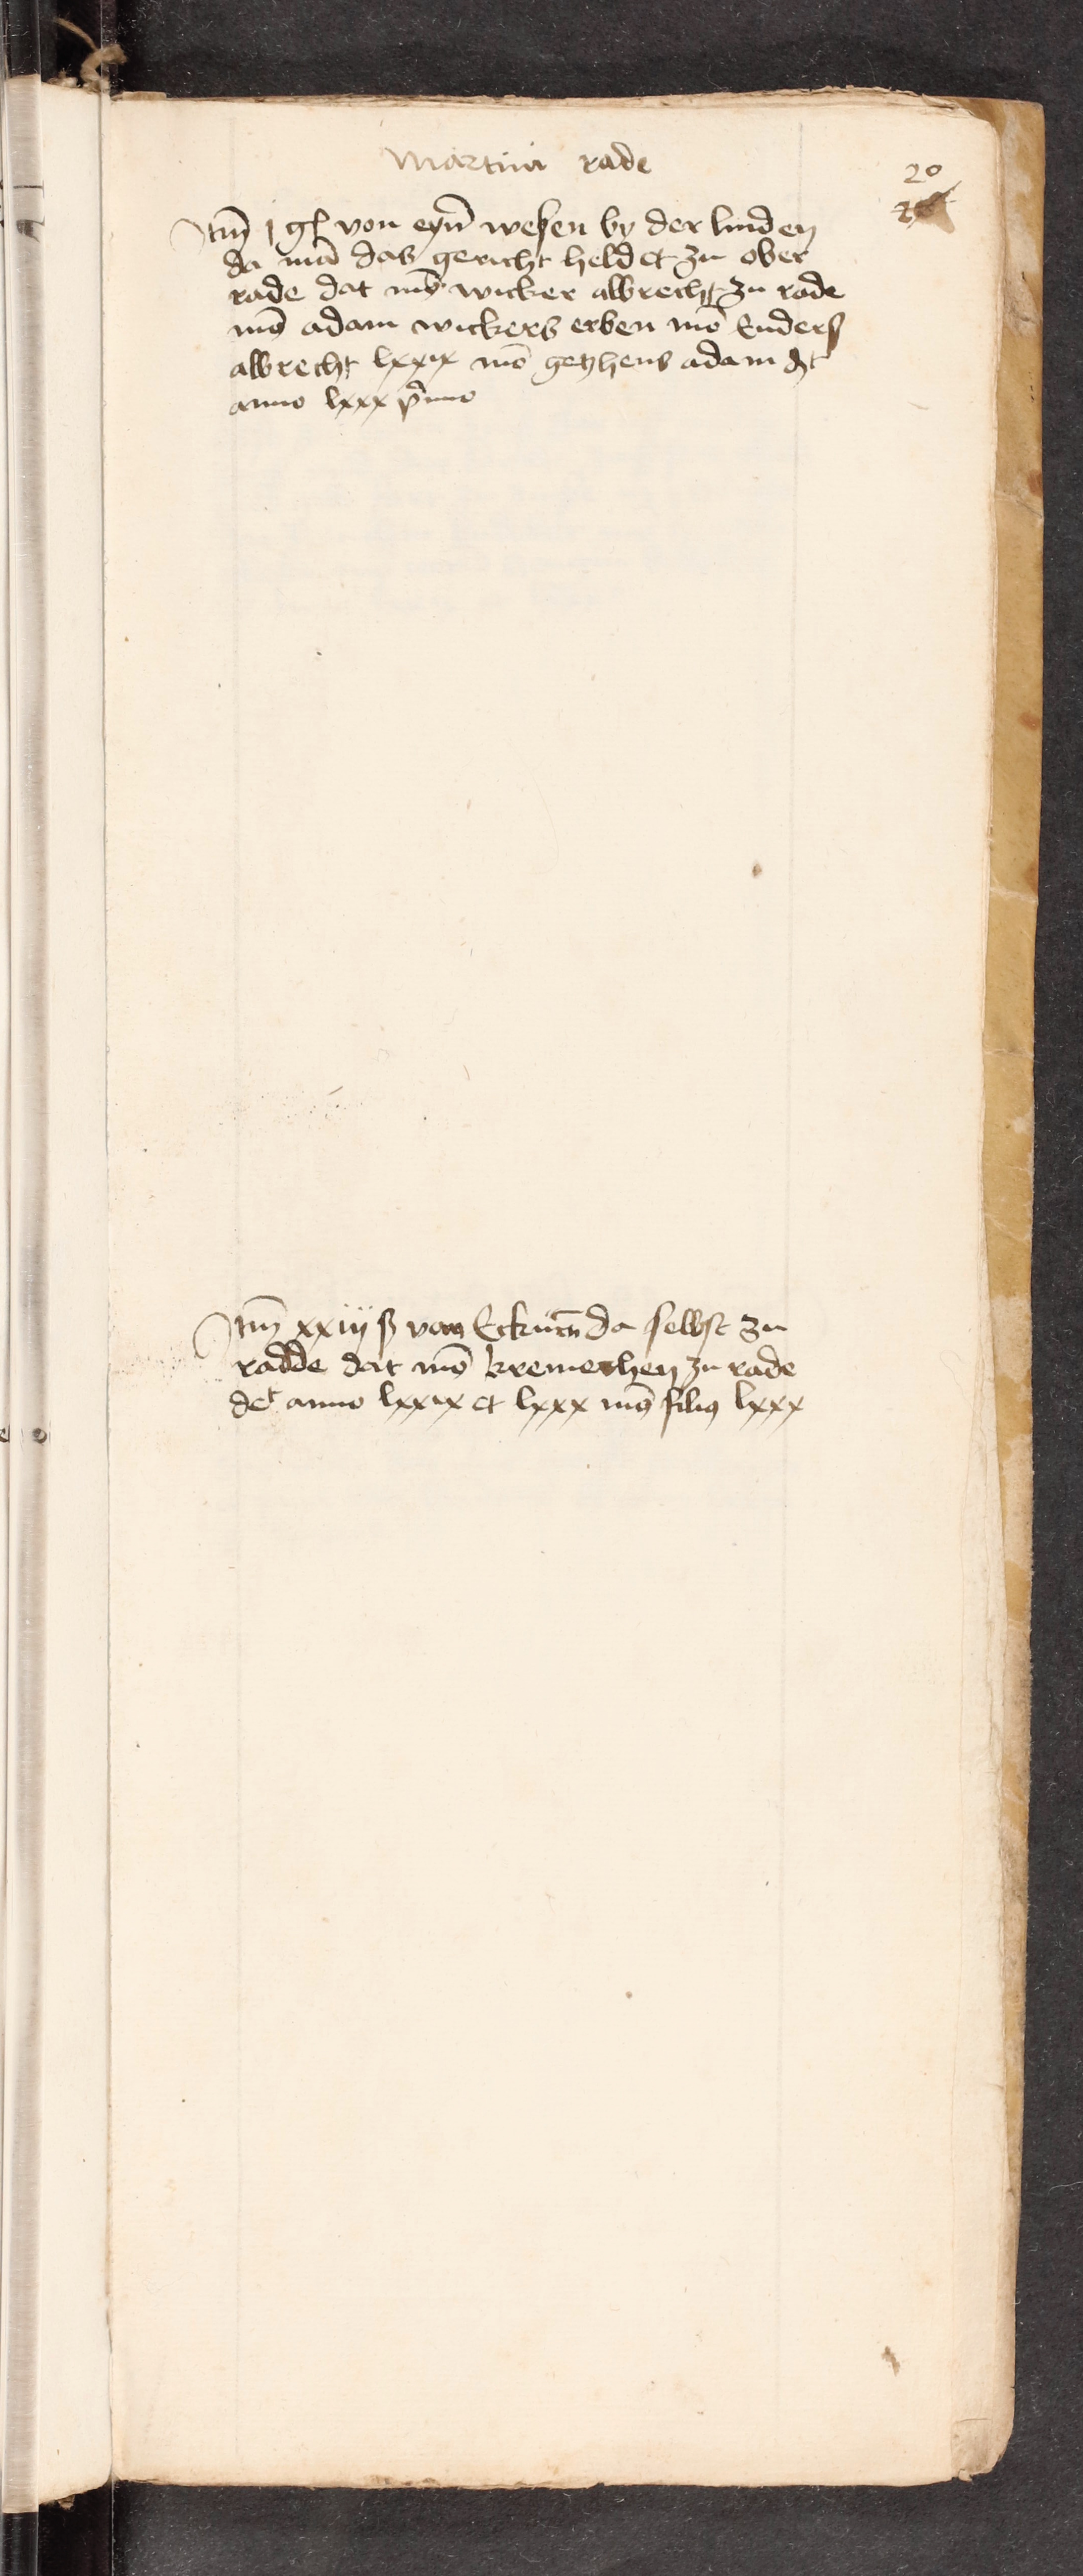 Martini rade
20
Itm̄ j gl von eyn̄ wesen by der linden
da mā das gericht heldet zu ober
rade dat mō wicker albrecht zu rade
mō adam wickers erben mō Enders
albrecht lxxix mō adam dt
anno lxxx p̄mo
Itm̄ xxiiij ß von da selbst zu
radde dat mō kremerhen zu rade
det anno lxxix et lxxx mō filius lxxx